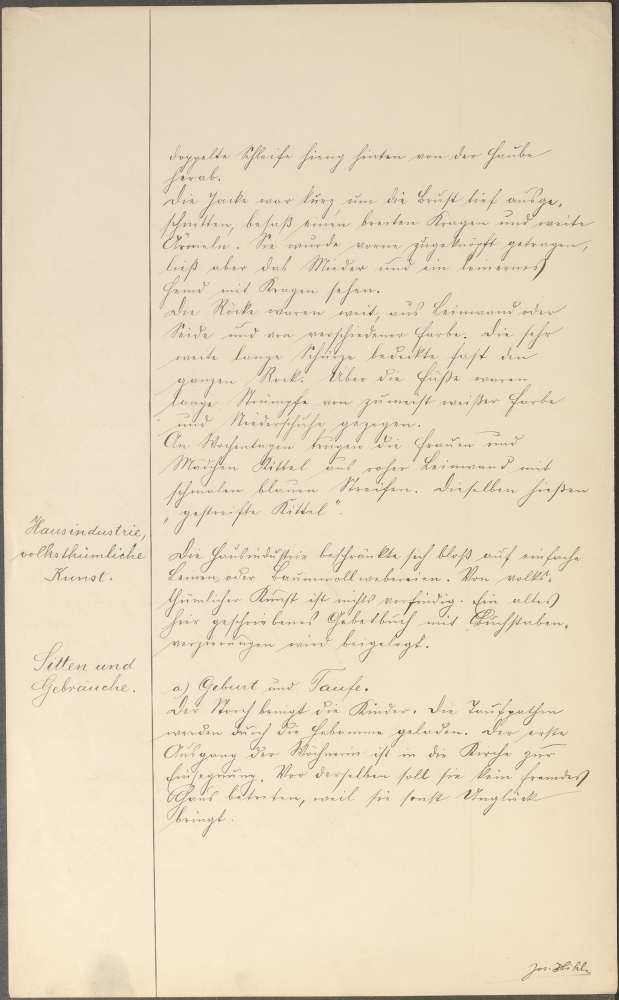 doppelte Schleife hieng hinten von der Haube
herab.
Die Jacke war kurz um die Brust tief ausge-
schnitten, besaß einen breiten Kragen und weite
Ärmeln. Sie wurde vorne zugeknöpft getragen,
ließ aber das Mieder und ein leinernes
Hemd mit Kragen sehen.
Die Röcke waren weit, aus Leinwand oder
Seide und von verschiedener Farbe. Die sehr
weite lange Schürze bedeckte fast den
ganzen Rock. Über die Füße waren
lange Strümpfe von zumeist weißer Farbe
und Niederschuhe gezogen.
An Wochentagen trugen die Frauen und
Mädchen Kittel aus roher Leinwand mit
schmalen blauen Streifen. Dieselben hießen
"gestreifte Kittel".
Hausindustrie,
volksthümliche
Kunst.
Die Hausindustrie beschränkte sich bloß auf einfache
Leinen oder Baumwollwebereien. Von volks-
thümlicher Kunst ist nichts vorfindig. Ein altes
hier geschriebenes Gebetbuch mit Buchstaben-
verzierungen wird beigelegt.
Sitten und
Gebräuche.
a) Geburt und Taufe.
Der Storch bringt die Kinder. Die Taufpathen
werden durch die Hebamme geladen. Der erste
Ausgang der Wöchnerin ist in die Kirche zur
Einsegnung. Vor derselben soll sie kein fremdes
Haus betreten, weil sie sonst Unglück
bringt.
Jos.